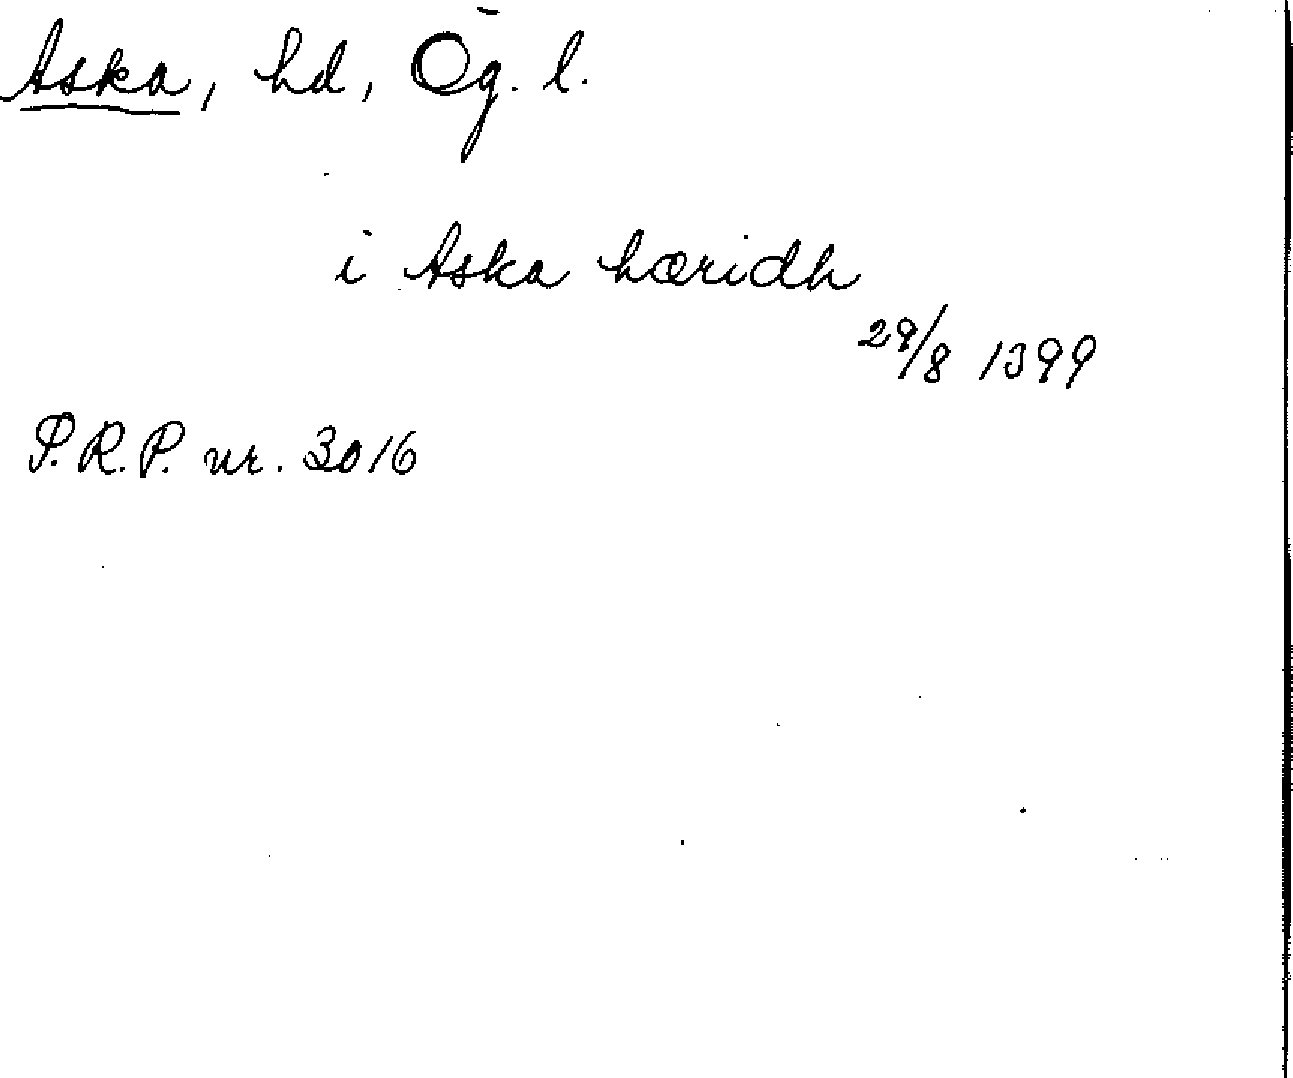 Aska, hd, Ög. l.
i Aska hæridh
29/8 1399
P.R.P. nr. 3016